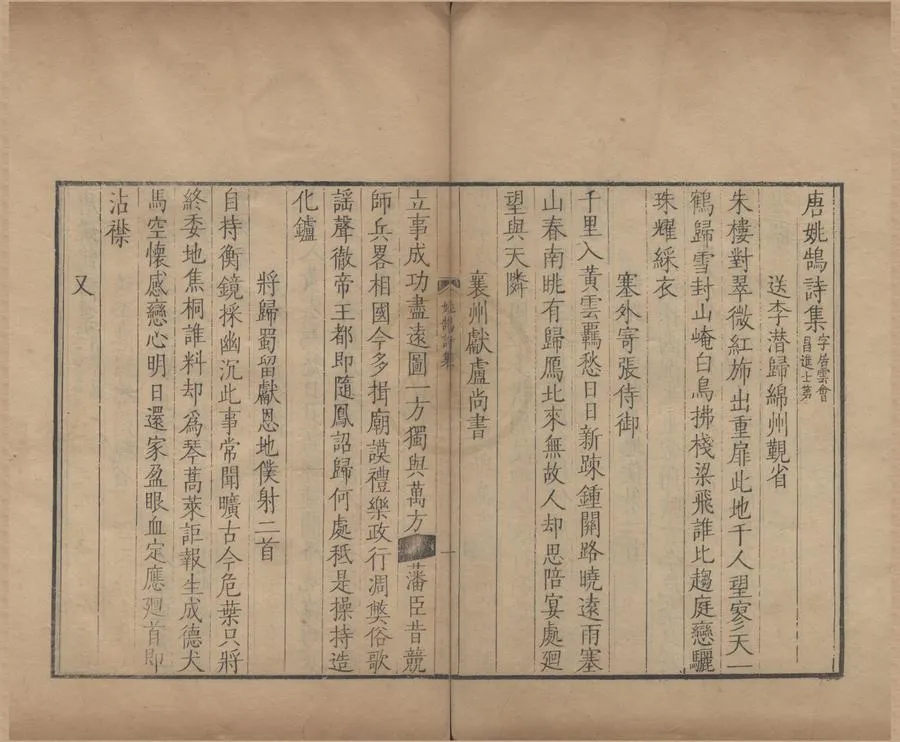 唐姚鵠詩集字居雲會昌進士第
送李潜歸綿州覲省
朱樓對翠微紅斾出重扉此地千人望寥天一
鶴歸雪封山崦白鳥拂棧梁飛誰比趨庭戀驪
珠耀綵衣
塞外寄張侍御
千里入黃雲羈愁日日新疎鍾關路曉遠雨塞
山春南眺有歸鴈北來無故人却思陪宴處廻
望與天隣
襄州獻盧尚書
立事成功盡遠圖一方獨與萬方
藩臣昔競
師兵畧相國今多揖廟謨禮樂政行凋獘俗歌
謡聲徹帝王都即隨鳳詔歸何處秪是操持造
化鑪
將歸蜀留獻恩地僕射二首
自持衡鏡採幽沉此事常聞曠古今危葉只將
終委地焦桐誰料却爲琴蒿萊詎報生成德犬
馬空懷感戀心明日還家盈眼血定應廻首即
沾襟
又
姚鵠詩集
一